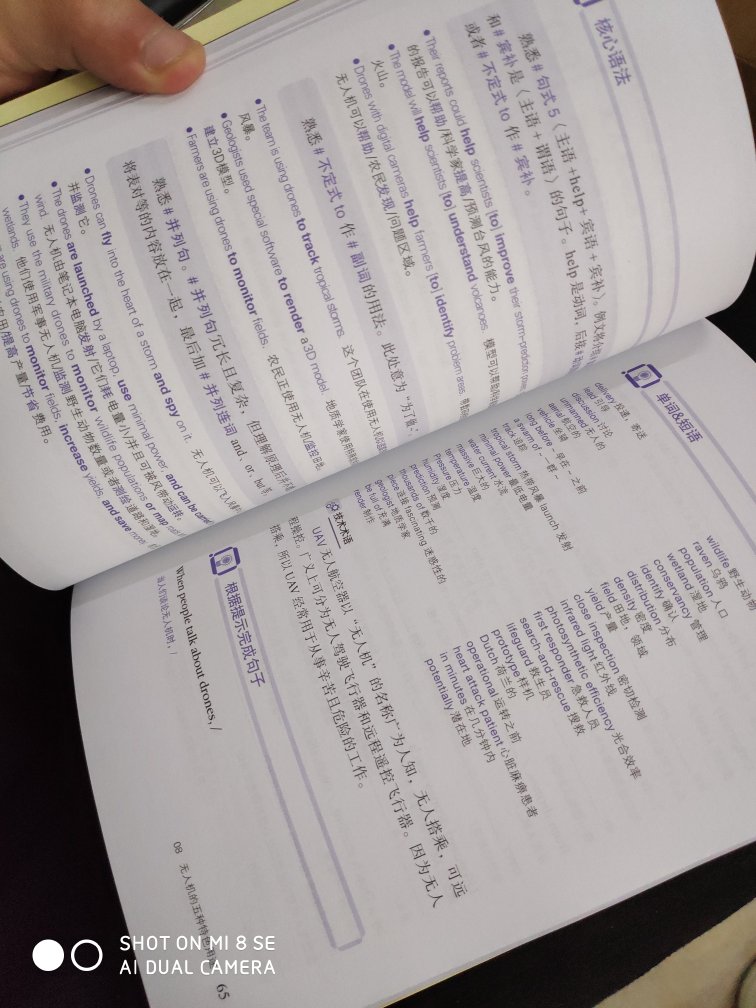 核心语法
熟悉#句式5（主语+help+宾语+宾补）。例文将分
和#宾补是〈主语+谓语〉的句子。help是动词，后接#
或者#不定式to作#宾补。
●Their reports could help scientists [to] improve their storm-prediction
的报告可以帮助/科学家提高/预测台风的能力。
●The model will help scientists [to] understand volcanoes. 模型可以帮助
火山。
●Drones with digital cameras help farmers [to] identify problem areas.
无人机可以帮助/农民发现/问题区域。
熟悉#不定式to作#副词的用法。此处意为“为了做
●The team is using drones to track tropical storms. 这个团队在使用无人机
风暴。
●Geologists used special software to render a 3D model. 地质学家使用
建立3D模型。
●Farmers are using drones to monitor fields. 农民正使用无人机/监控田地。
熟悉#并列句。#并列句冗长且复杂，但理解原理后
将表对等的内容放在一起，最后加#并列连词and、or、but等
●Drones can fly into the heart of a storm and spy on it. 无人机可以飞入
并监测它。
●The drones are launched by a laptop, use minimal power, and can be carried
wind. 无人机由笔记本电脑发射/它们耗电量小/并且可被风带动运转。
●They use the military drones to monitor wildlife populations or map
wetlands. 他们使用军事无人机/监测野生动物数量或者测绘道路和湿地。
are using drones to monitor fields, increase yields, and save
/提高产量/节省费用。
单词&短语
delivery 投递，寄送
lead 引导
discussion 讨论
unmanned 无人的
aerial 航空的
vehicle 坐骑
long before ~ 早在~之前
a swarm of ~ 一群~
track 追踪
tropical storm 热带风暴 launch 发射
minimal power 最低电量
water current 水流
massive 巨大的
temperature 温度
Pressure 压力
humidity 湿度
prediction 预测
thousands of 数千的
piece 连接 fascinating 迷惑性的
geologist 地质学家
be full of 充满
render 制作
wildlife 野生动物
raven 乌鸦
population 人口
wetland 湿地
conservancy 管理
identify 确认
distribution 分布
density 密度
field 田地，领域
yield 产量
close inspection 密切检测
infrared light 红外线
photosynthetic efficiency 光合效率
first responder 急救人员
search-and-rescue 搜救
lifeguard 救生员
prototype 样机
Dutch 荷兰的
operational 运转之前
heart attack patient 心脏麻痹患者
in minutes 在几分钟内
potentially 潜在地
技术术语
UAV 无人航空器以“无人机”的名称广为人知，无人搭乘，可远
程操控。广义上可分为无人驾驶飞行器和远程遥控飞行器。因为无人
搭乘，所以UAV经常用于从事辛苦且危险的工作。
根据提示完成句子
When people talk about drones, /
当人们谈论无人机时，/
08 无人机的五种特色用
65
SHOT ON MI 8 SE
AI DUAL CAMERA